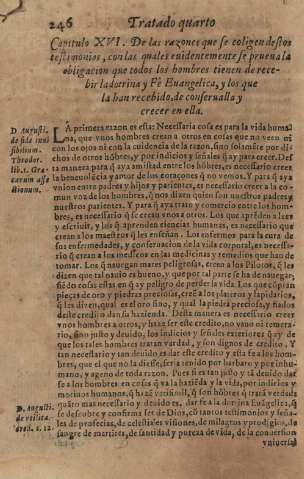 246 Tratado quarto
Capitulo XVI. De las razones que se coligen destos
testimonios, con las quales euidentemente se prueua la
obligacion que todos los hombres tienen de rece-
bir la dotrina y Fè Euangelica, y los que
la han recebido, de conserualla y
crecer en ella.
D. Augusti.
de fide inui
sibilium.
Theodor.
lib. 1. Grę-
carum affe
ctionum.
LA primera razon es esta: Necessaria cosa es para la vida huma
na, que vnos hombres crean a otros en cosas que no veen ni
con los ojos ni con la euidencia de la razon, sino solamẽte por di-
chos de otros hõbres, y por indicios y señales q̃ ay para creer. Des
ta manera para q̃ aya amistad entre los hõbres, es necessario creer
la beneuolẽcia y amor de los coraçones q̃ no vemos. Y para q̃ aya
vnion entre padres y hijos y parientes, es necessario creer a la co-
mun voz de los hombres, q̃ nos dizen quien son nuestros padres y
nuestros parientes. Y para q̃ aya trato y comercio entre los hom-
bres, es necessario q̃ se crean vnos a otros. Los que aprẽden a leer
y escriuir, y los q̃ aprenden ciencias humanas, es necessario que
crean a los maestros q̃ les enseñan. Los enfermos para la cura de
sus enfermedades, y conseruacion de la vida corporal, es necessa-
rio q̃ crean a los medicos en las medicinas y remedios que han de
tomar. Los q̃ nauegan mares peligrosas, creen a los Pilotos, q̃ les
dizen que tal nauio es bueno, y que por tal parte se ha de nauegar,
siẽdo cosas estas en q̃ ay peligro de perder la vida. Los que cõpran
pieças de oro y piedras preciosas, creẽ a los plateros y lapidarios,
q̃ les dizen, qual es el oro fino, y qual la piedra preciosa, y fiados
deste credito dan su hazienda. Desta manera es necessario creer
vnos hombres a otros, y haze ser este credito, no vano ni temera-
rio, sino justo y deuido, los indicios y señales exteriores q̃ ay de
que los tales hombres tratan verdad, y son dignos de credito. Y
tan necessario y tan deuido es dar este credito y esta fe a los hom-
bres, que el que no la diesse, seria tenido por barbaro y por inhu-
mano, y ageno de toda razon. Pues si es tan justo y tã deuido dar
fe a los hombres en cosas q̃ va la haziẽda y la vida, por indicios y
D. Augusti.
de vtilita.
cred. c. 12.
se descubre y confirma ser de Dios, cõ tantos testimonios y seña-
les de profecias, de celestiales visiones, de milagros y prodigios, de
sangre de martires, de santidad y pureza de vida, de la conuersion
vniuersal